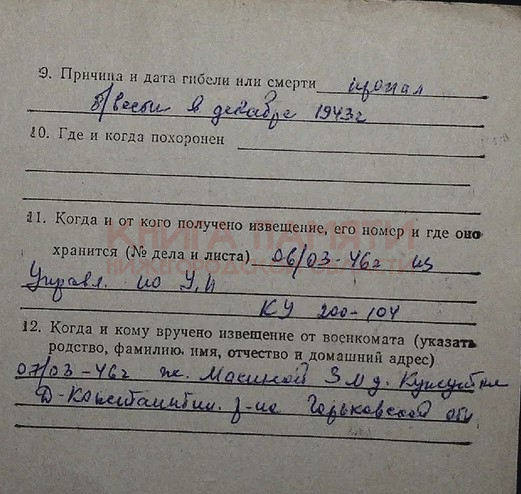 9. Причина и дата гибели или смерти пропал
б/вести в декабре 1943г
10. Где и когда похоронен
11. Когда и от кого получено извещение, его номер и где оно
КНИГА ПАМЯТИ
хранится (№ дела и листа) 06/03-46г из
НИЖЕГОРОДСКОЙ ОБЛАСТИ
Управл. по У,П
КУ 200-104
12. Когда и кому вручено извещение от военкомата (указать
родство, фамилию, имя, отчество и домашний адрес)
07/03-46г ж. З М д.
Д-Константин. р-на Горьковской обл